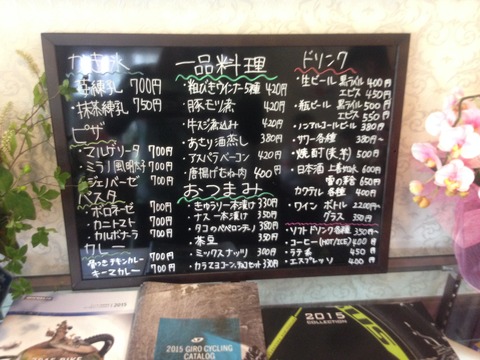 かき氷
苺練乳 700円
・抹茶練乳 750円
ピザ
・マルゲリータ 700円
・ミラノ風明太子 700円
・ジェノベーゼ 700円
パスタ
・ボロネーゼ 700円
・カニトマト 700円
・カルボナーラ 700円
カレー
骨つきチキンカレー 700円
キーマカレー 700円
一品料理
・粗びきウインナー5種 420円
・豚モツ煮 420円
・牛スジ煮込み 420円
・あさり酒蒸し 380円
・アスパラベーコン 420円
・唐揚げ 400円
おつまみ
・きゅうり一本漬け 330円
・ナス一本漬け 330円
・タコのペペロンチーノ 350円
・茶豆 350円
・ミックスナッツ 300円
・カラマヨコーン、チョコセット 330円
ドリンク
・生ビール 黒ラベル 400円
エビス 450円
・瓶ビール 黒ラベル 500円
エビス 550円
・ノンアルコールビール 380円
・サワー各種 380円~
・焼酎(麦芋) 500円
・日本酒 上善如水 600円
650円
カクテル各種 400円
・ワイン ボトル 2200円~
グラス 350円
・ソフトドリンク各種 350円~
・コーヒー(HOT/ICE) 400円
・ラテ系 450円
・エスプレッソ 400円
2015 BIKE
2015 GIRO CYCLING
CATALOG
2015
COLLECTION